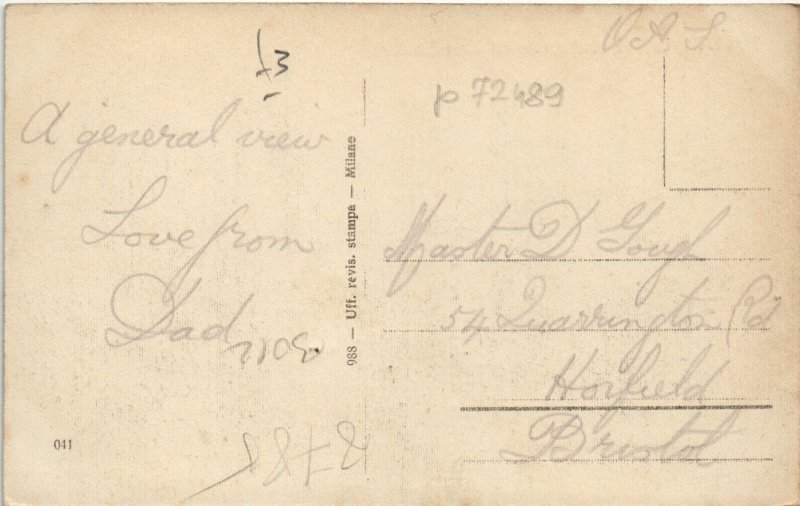 O.A.S.
p 72489
A general view
Love from
Dad
Master D Gough
54 Quarrington Rd
Horfield
Bristol
988 — Uff. revis. stampa — Milano
041